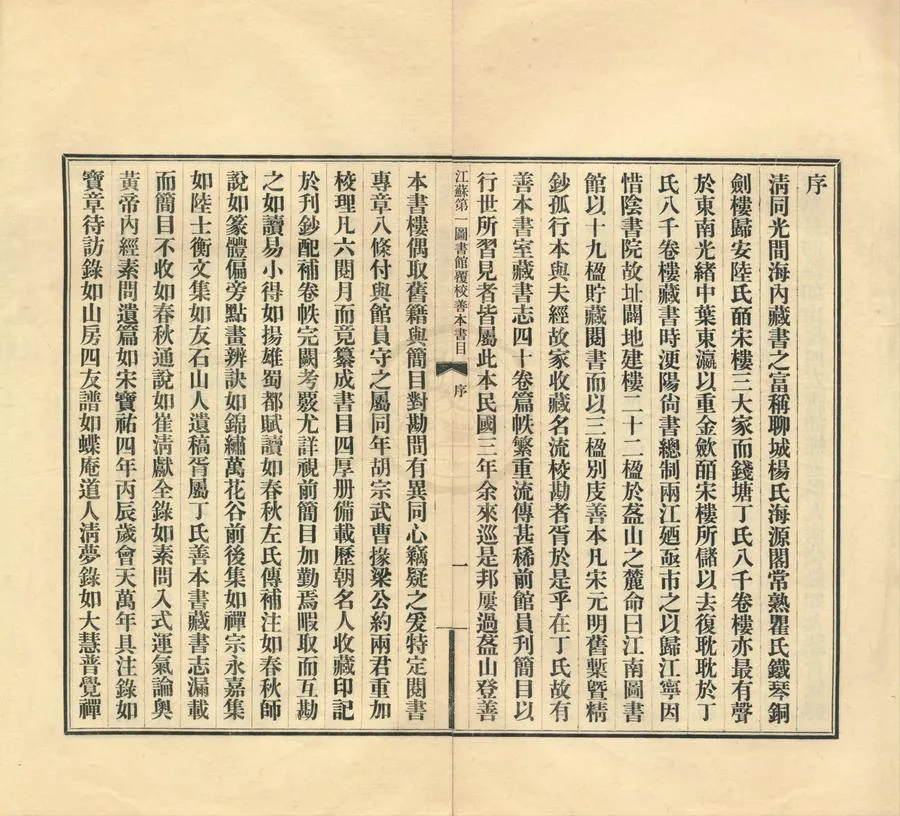 序
清同光間海內藏書之富稱聊城楊氏海源閣常熟瞿氏鐵琴銅
劍樓歸安陸氏皕宋樓三大家而錢塘丁氏八千卷樓亦最有聲
於東南光緒中葉東瀛以重金歛皕宋樓所儲以去復耽耽於丁
氏八千卷樓藏書時浭陽尙書總制兩江廼亟市之以歸江寧因
惜陰書院故址闢地建樓二十二楹於盋山之麓命曰江南圖書
館以十九楹貯藏閱書而以三楹別庋善本凡宋元明舊槧曁精
鈔孤行本與夫經故家收藏名流校勘者胥於是乎在丁氏故有
善本書室藏書志四十卷篇帙繁重流傳甚稀前館員刋簡目以
行世所習見者皆屬此本民國三年余來巡是邦屢過盋山登善
江蘇第一圖書館覆校善本書目 序 一
本書樓偶取舊籍與簡目對勘間有異同心竊疑之爰特定閱書
專章八條付與館員守之屬同年胡宗武曹掾梁公約兩君重加
校理凡六閱月而竟纂成書目四厚册備載歷朝名人收藏印記
於刋鈔配補卷帙完闕考覈尤詳視前簡目加勤焉暇取而互勘
之如讀易小得如揚雄蜀都賦讀如春秋左氏傳補注如春秋師
說如篆體偏旁點畫辨訣如錦繡萬花谷前後集如禪宗永嘉集
如陸士衡文集如友石山人遺稿胥屬丁氏善本書藏書志漏載
而簡目不收如春秋通說如崔淸獻全錄如素問入式運氣論奧
黃帝內經素問遺篇如宋寶祐四年丙辰歲會天萬年具注錄如
寶章待訪錄如山房四友譜如蝶庵道人淸夢錄如大慧普覺禪